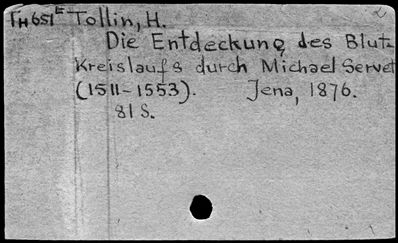 TH651E Tollin, H.
Die Entdeckung des Blut-
Kreislaufs durch Michael Servet
(1511-1553). Jena, 1876.
81 S.